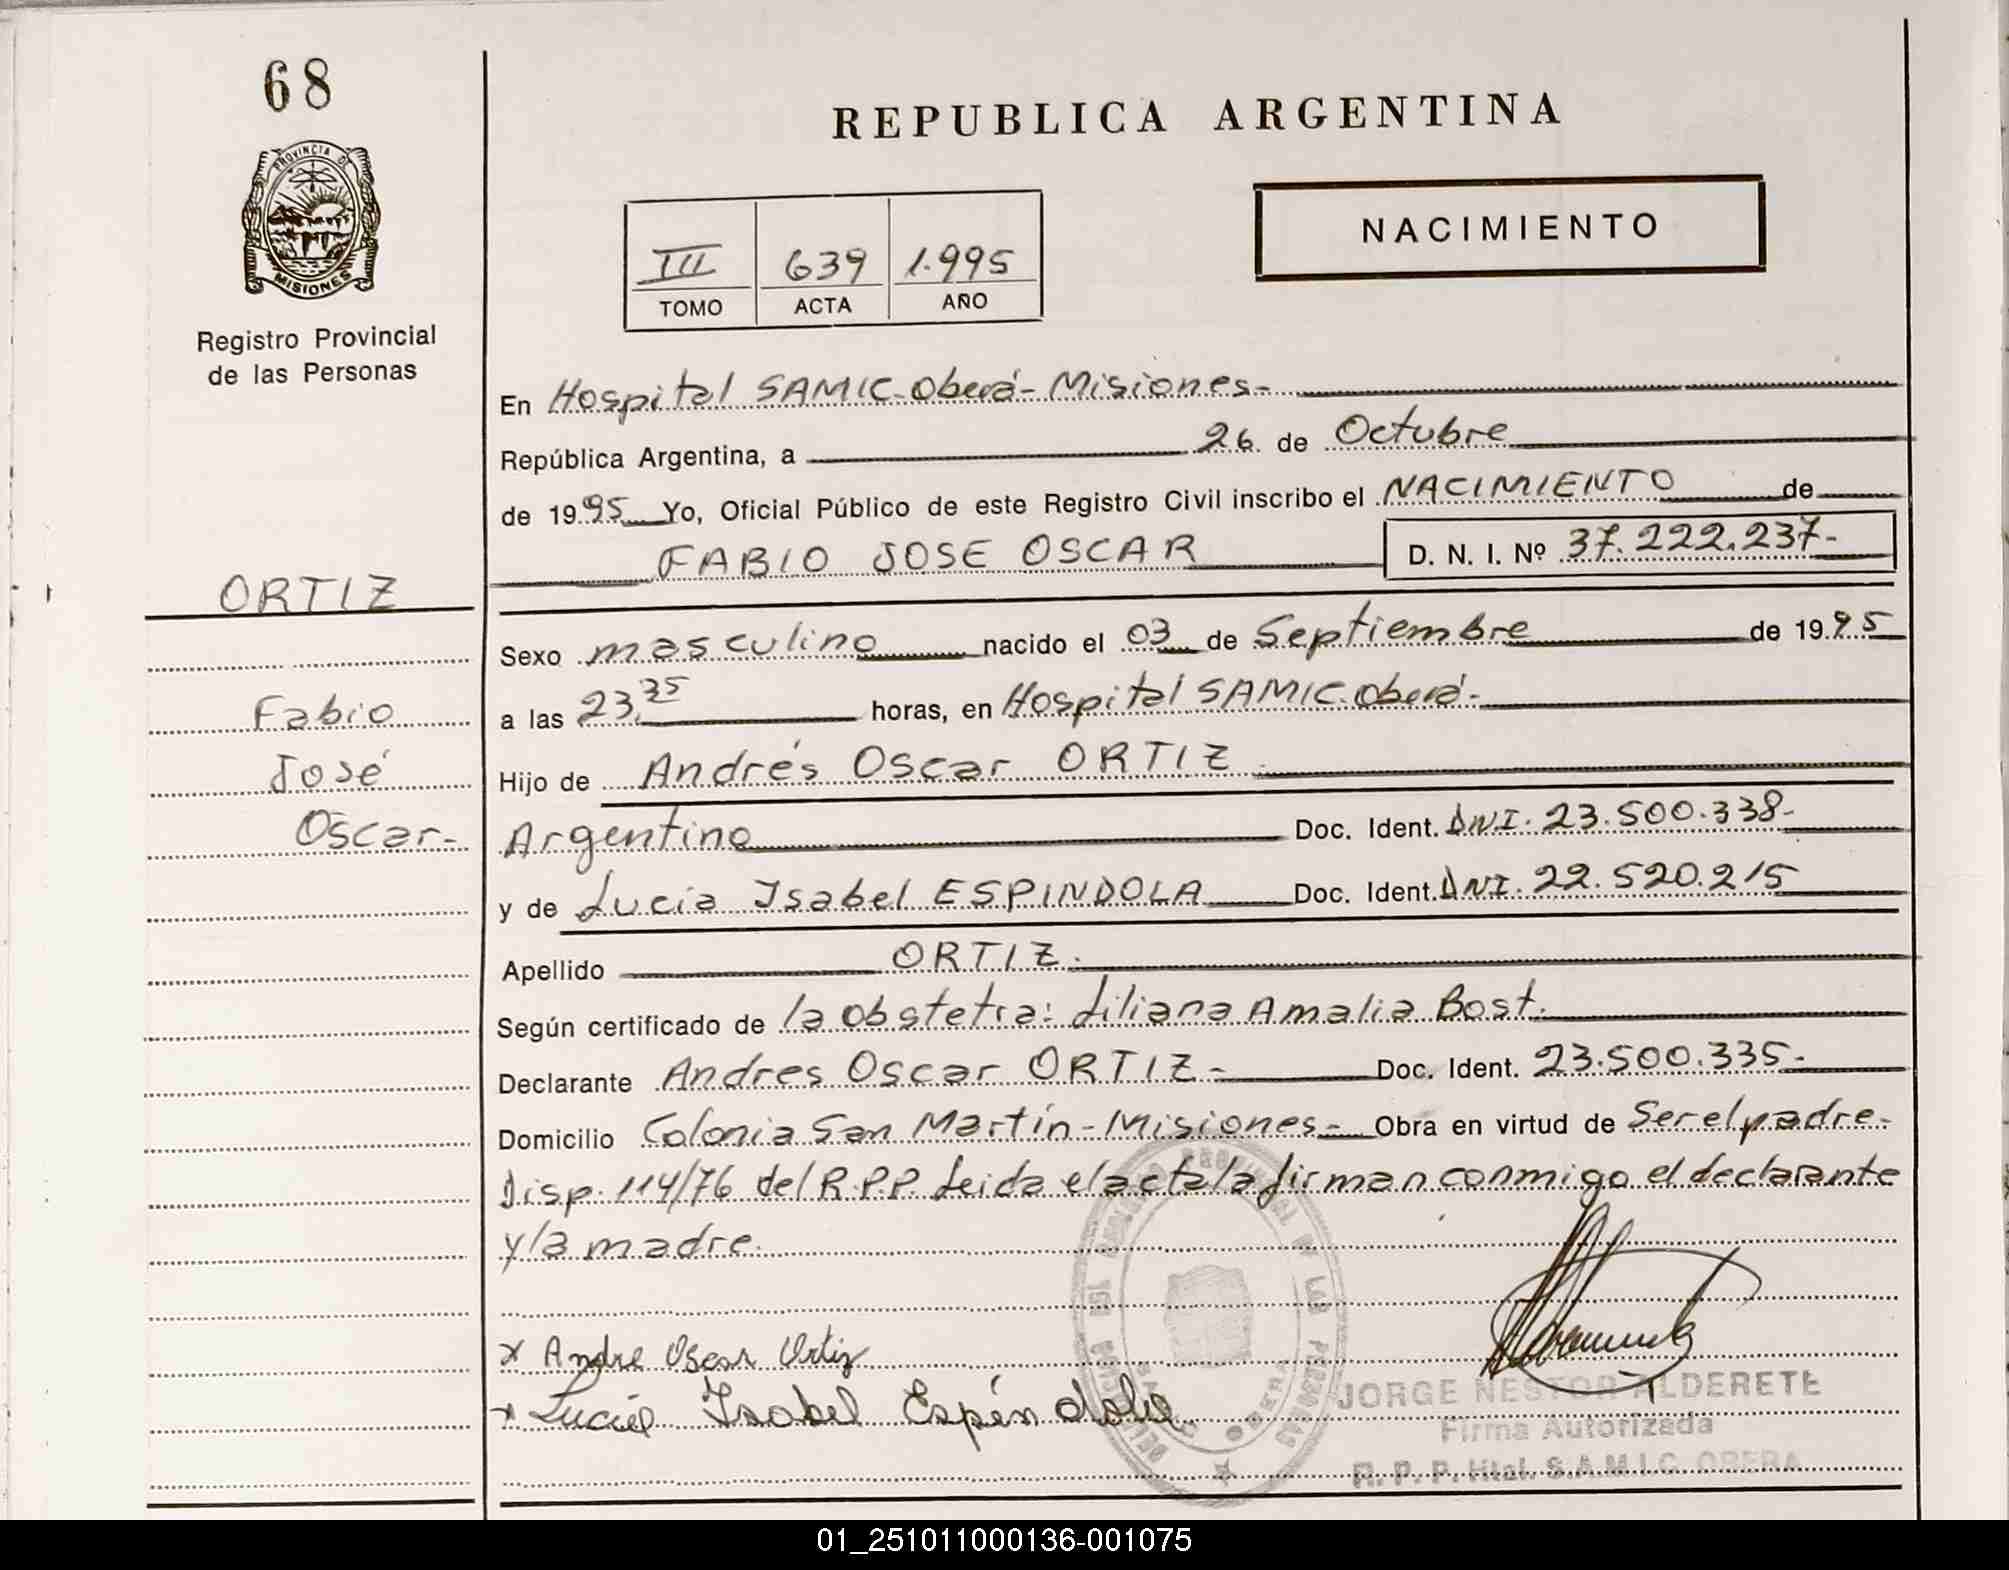 68
PROVINCIA DE
MISIONES
Registro Provincial
de las Personas
REPUBLICA ARGENTINA
NACIMIENTO
III 639 1.995
TOMO ACTA AÑO
En Hospital SAMIC-Oberá-Misiones-
República Argentina, a 26 de Octubre
de 1995 Yo, Oficial Público de este Registro Civil inscribo el NACIMIENTO de
FABIO JOSE OSCAR D. N. I. Nº 37.222.237-
ORTIZ
Fabio
José
Oscar-
Sexo masculino nacido el 03 de Septiembre de 1995
a las 23,35 horas, en Hospital SAMIC.Oberá-
Hijo de Andrés Oscar ORTIZ
Argentino Doc. Ident. DNI. 23.500.338-
y de Lucia Isabel ESPINDOLA Doc. Ident. DNI. 22.520.215
Apellido ORTIZ.
Según certificado de la obstetra: Liliana Amalia Bost.
Declarante Andres Oscar ORTIZ- Doc. Ident. 23.500.335-
Domicilio Colonia San Martín-Misiones- Obra en virtud de Ser el padre-
Disp. 114/76 del R.P.P. Leida el acta la firman conmigo el declarante
y la madre.
x Andre Oscar Ortiz
x Lucia Isabel Espíndola
JORGE NESTOR ALDERETE
Firma Autorizada
R. P. P. Htal. S.A.M.I.C OBERA
01_251011000136-001075